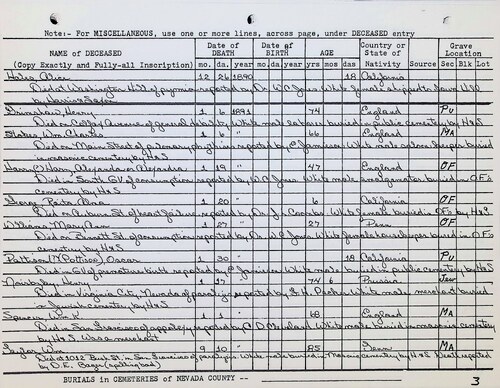 Note:- For MISCELLANEOUS, use one or more lines, across page, under DECEASED entry
NAME of DECEASED
(Copy Exactly and Fully-all Inscription)
Date of DEATH
mo. da. year
Date of BIRTH
mo. da. year
AGE
yrs mos das
Country or State of Nativity
Source
Grave Location
Sec Blk Lot
Hales, Alice 12 26 1890 18 California
Died at Washington Hill of pyemia reported by Dr. W.C. Jones. White female shipped to town Hill
by Harris & Sayer
Grimshaw, Henry 1 6 1891 74 England Pu
Died on reported by White male laborer buried in public cemetery by H&S
Stokes Wm. Charles 1 6 " 66 England MA
Died on Main Street of reported by C. Jamieson White male saloon keeper buried
in masonic cemetery by H&S
Harry 1 19 " 47 England OF
Died in South GV of consumption reported by W.C. Jones White male buried in OF's
cemetery by H&S
George Reita Alma 1 20 " 6 California OF
Died on Auburn St. of heart failure reported by Dr. J. Coombs White female buried in OF's by H&S
Williams Mary Ann 1 27 " 27 " Penn OF
Died on Bennett St of consumption reported by Dr. W.C. Jones White female housekeeper buried in OF's
cemetery by H&S
Pattson (Pattison) Oscar 1 30 " 18 California Pu
Died in GV of premature birth reported by C. Jamieson White male buried in public cemetery by H&S
Henry 1 17 " 74 6 Prussia Jew
Died in Virginia City, Nevada of paralysis reported by White male merchant buried
in Jewish cemetery by H&S
Spencer Wm K " 1 " 68 England MA
Died in San Francisco of apoplexy reported by C.D. Cleveland White male buried in masonic cemetery
by H&S. Was a merchant
Taylor Wm 9 10 " 85 Tenn MA
Died at 2012 Bush St. in San Francisco of paralysis White male buried in Masonic cemetery by H&S Death reported
by D.E. (spelling bad)
BURIALS in CEMETERIES OF NEVADA COUNTY --
3